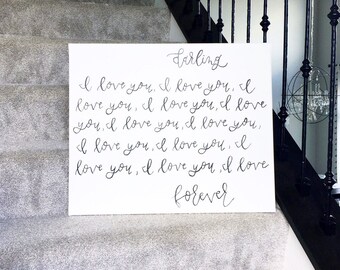 darling
I love you, I love you, I
love you, I love you, I love
you, I love you, I love you,
I love you, I love you, I
love you, I love you, I love
forever